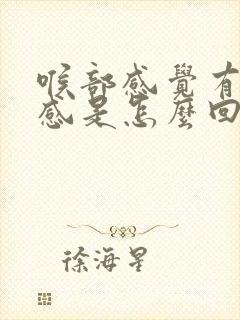 喉部感覺有
感是怎麼回
徐海星